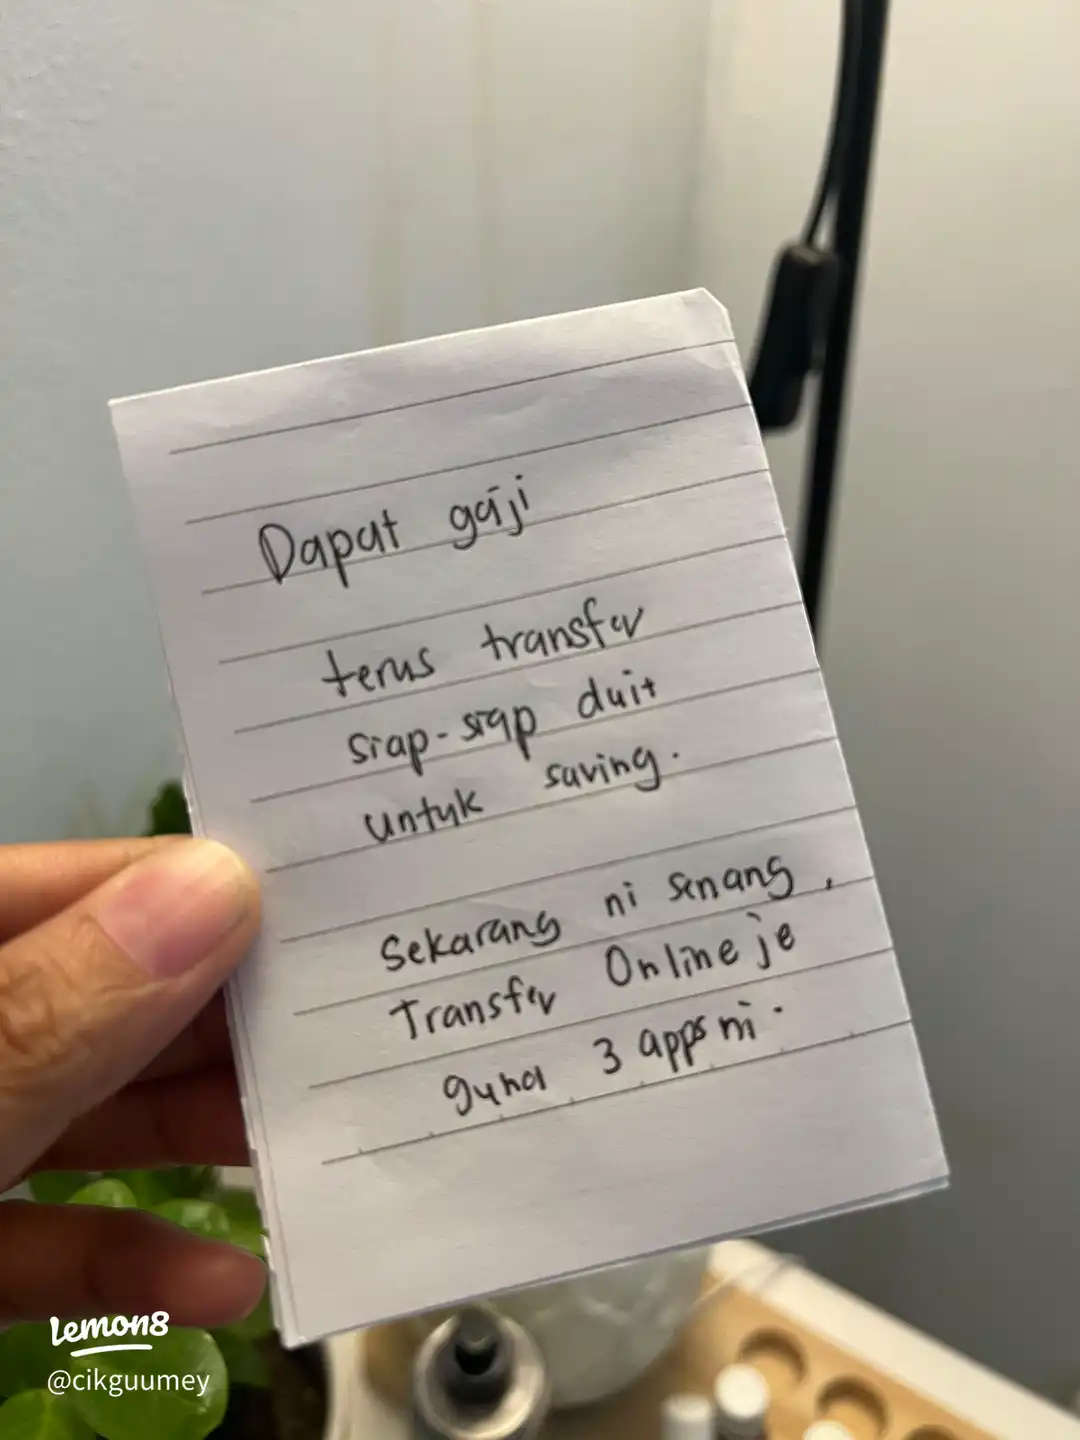 Dapat gaji
terus transfer
siap-siap duit
untuk saving.
Sekarang ni senang,
Transfer Online je
guna 3 apps ni.
Lemon8
@cikguumey